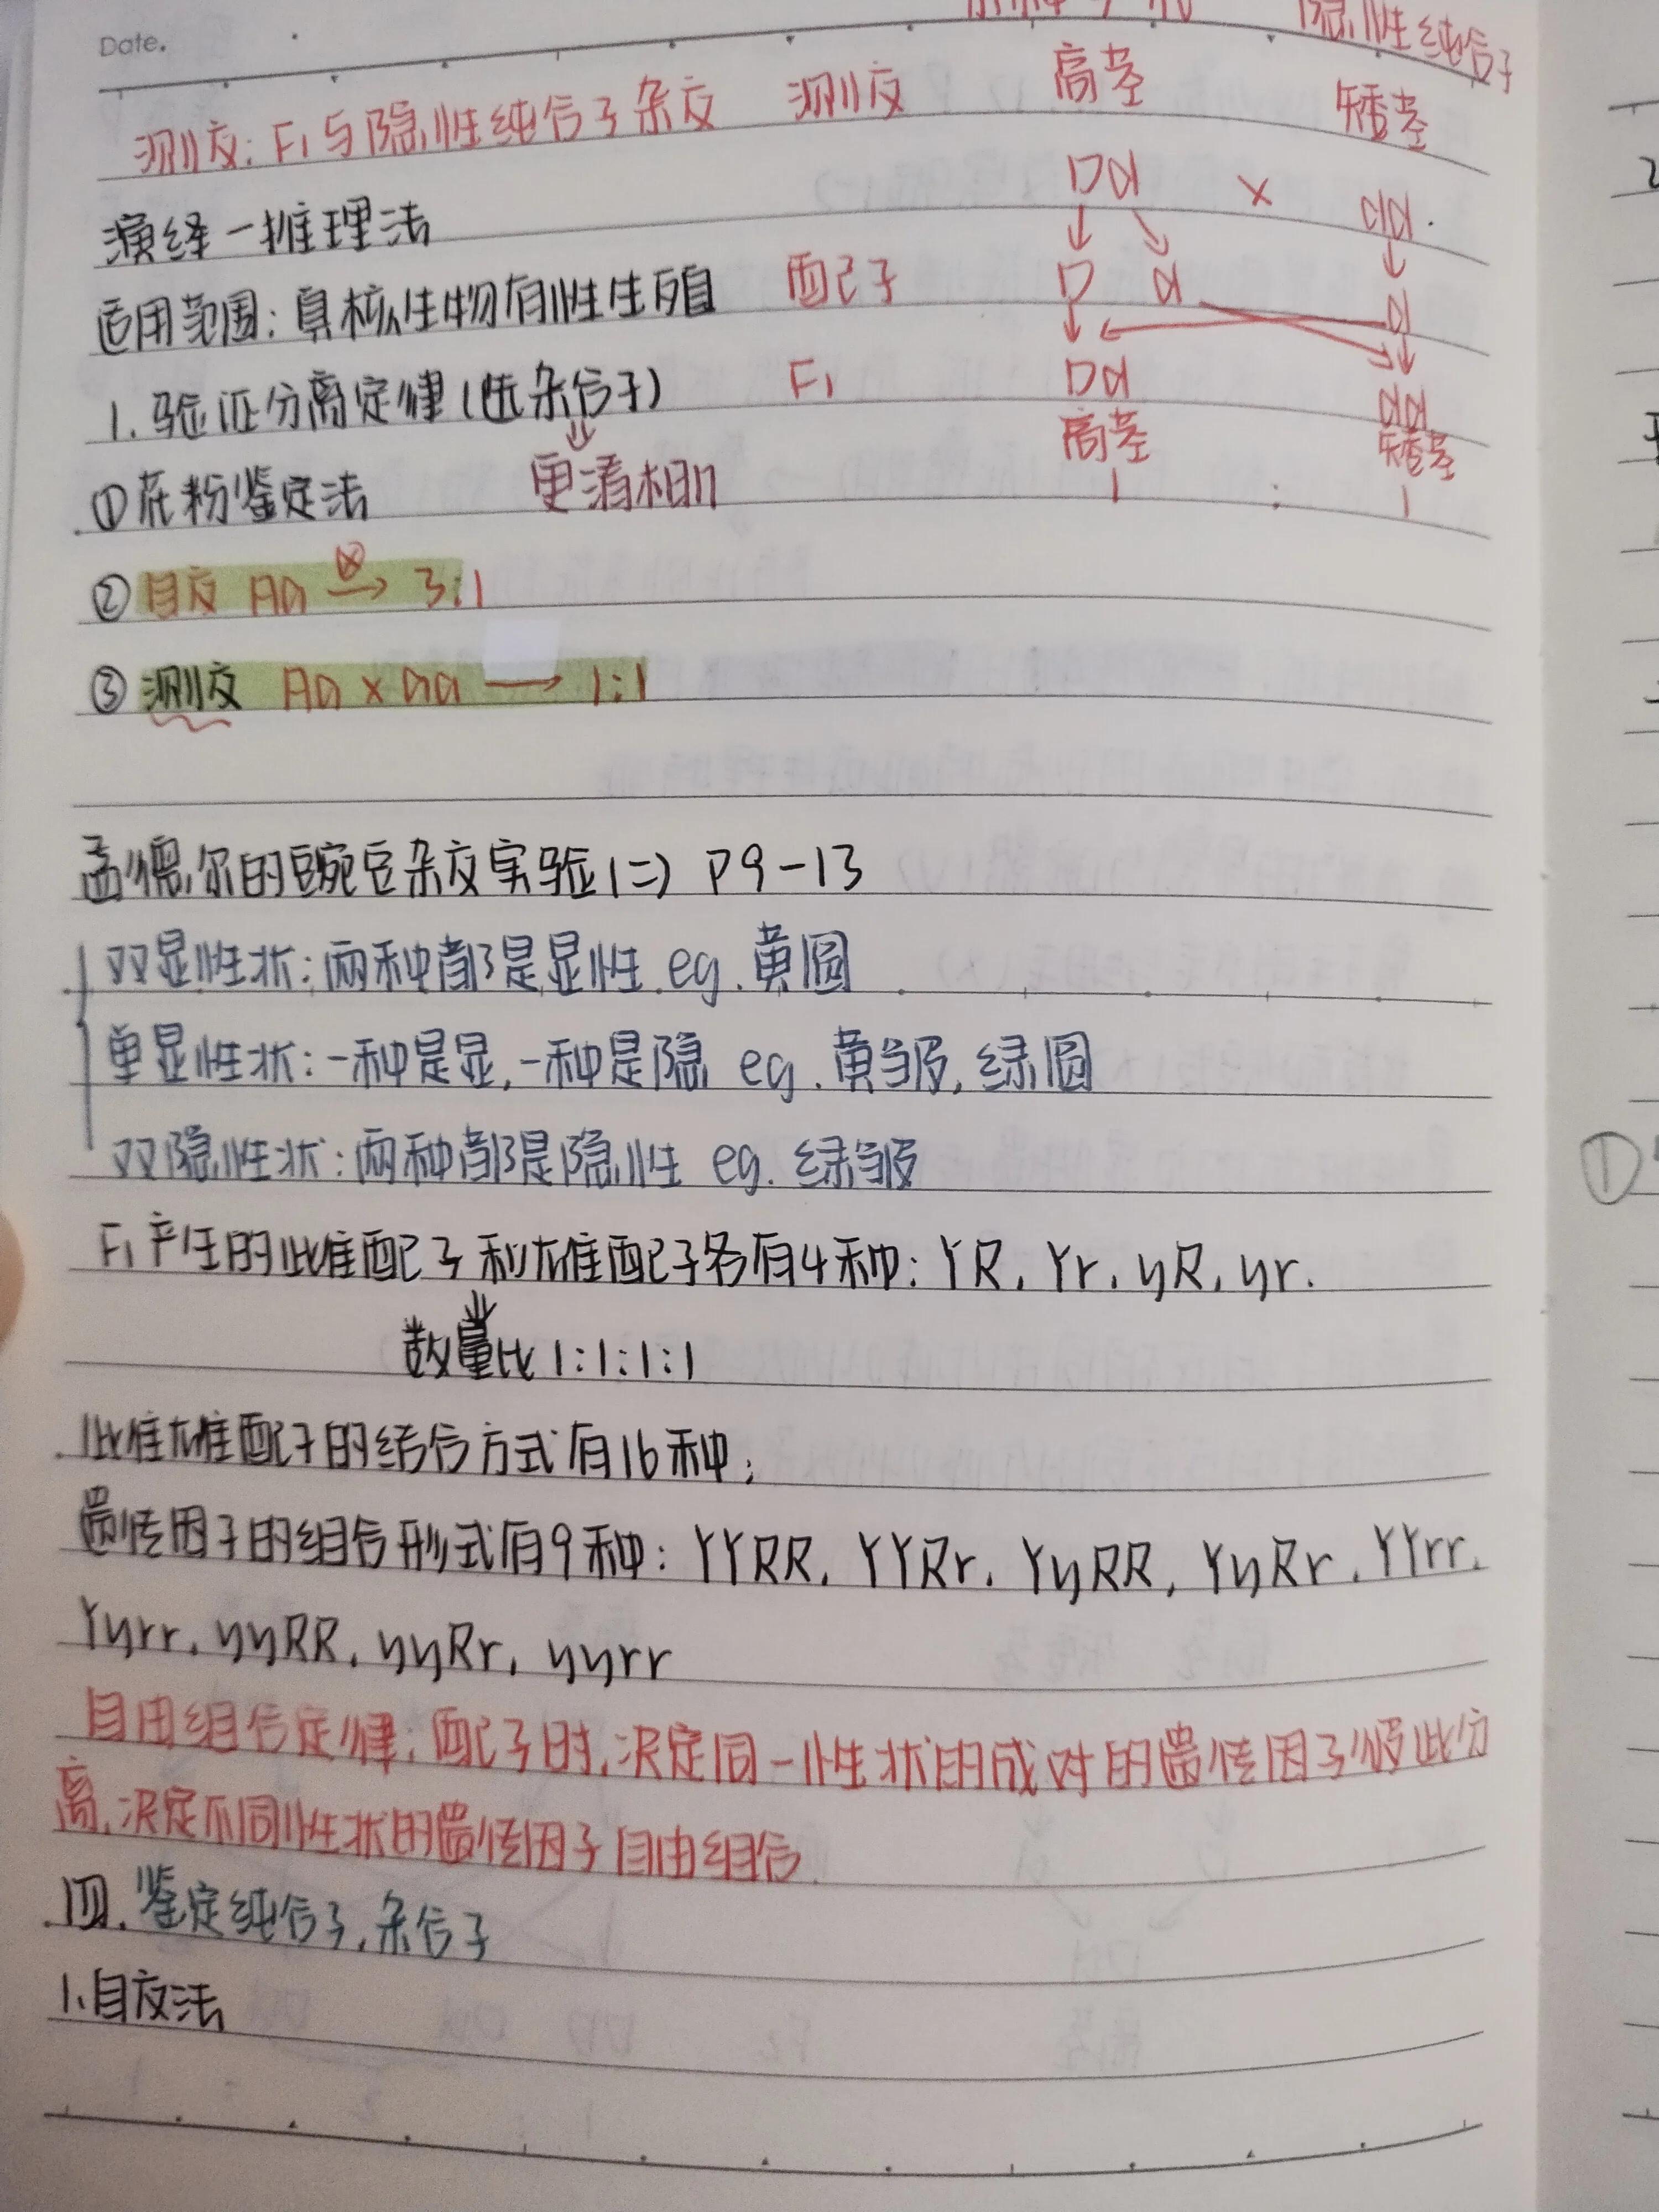 Date.
隐性纯合子
测交：F₁与隐性纯合子杂交 测交 高茎 矮茎
Dd × dd.
演绎一推理法
配子 D d d
适用范围：真核生物有性生殖
F₁ Dd dd
1. 验证分离定律（选杂合子）
高茎 矮茎
1 : 1
①花粉鉴定法
②自交 Aa ⊗→ 3:1
③测交 Aa × aa → 1:1
孟德尔的豌豆杂交实验(二) P9-13
双显性状：两种都是显性 eg. 黄圆
单显性状：一种是显，一种是隐 eg. 黄皱，绿圆
双隐性状：两种都是隐性 eg. 绿皱
F₁产生的雌雄配子和雄配子各有4种：YR, Yr, yR, yr.
数量比 1:1:1:1
雌雄配子的结合方式有16种；
遗传因子的组合形式有9种：YYRR, YYRr, YyRR, YyRr, YYrr,
Yyrr, yyRR, yyRr, yyrr
自由组合定律：配子时，决定同一性状的成对的遗传因子彼此分
离，决定不同性状的遗传因子自由组合.
四. 鉴定纯合子，杂合子
1. 自交法
①